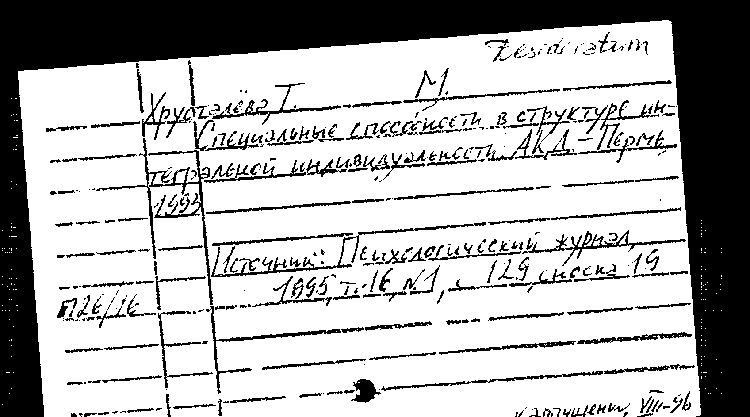 Desideratum
Хрусталёва, Т. М.
Специальные способности в структуре ин-
тегральной индивидуальности. АКД – Пермь,
1993
Источник: Психологический журнал,
1995, т. 16, №1, с. 129, сноска 19
П26/16
VIII-96